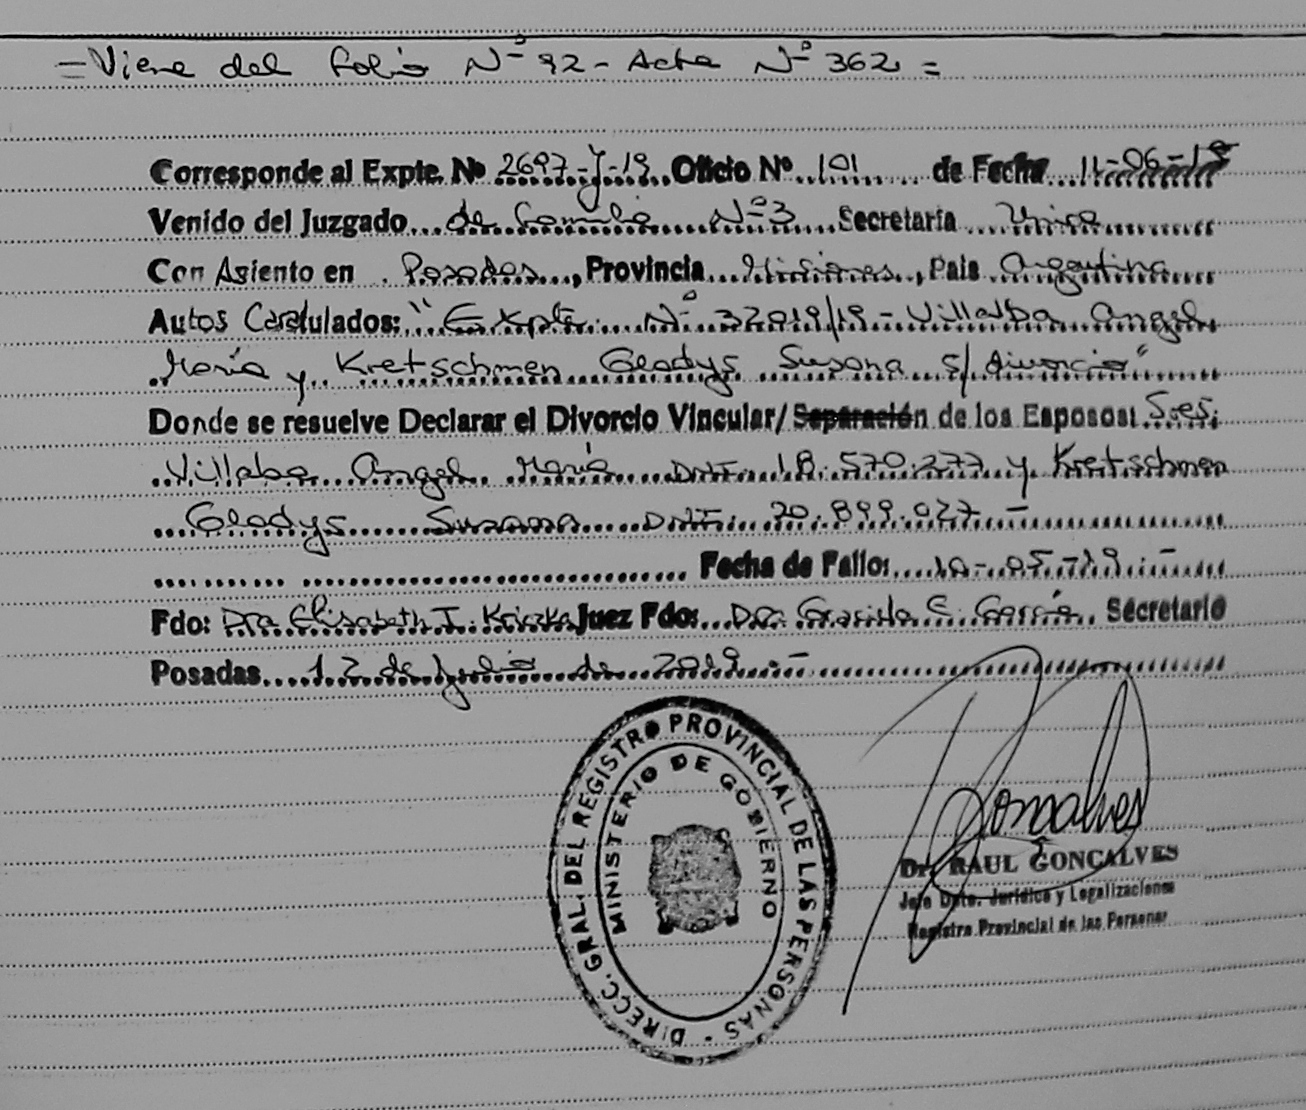 = Viene del folio Nº 92 - Acta Nº 362 =
Corresponde al Expte. Nº 2697-J-19 Oficio Nº 101 de Fecha 11-06-19
Venido del Juzgado de Familia Nº 3 Secretaría Unica
Con Asiento en Posadas, Provincia Misiones, Pais Argentina
Autos Caratulados: "Expte. Nº 32019/19 - Villalba Angel
María y Kretschmen Gladys Susana s/ divorcio"
Donde se resuelve Declarar el Divorcio Vincular/ Separación de los Esposos: S.es.
Villaba Angel María DNI. 18.570.277 y Kretschmen
Gladys Susana DNI. 20.899.027 -
Fecha de Fallo: 10-05-19. -
Fdo: Dra Elisabeth I. Juez Fdo: Dra. Graciela E. García. Secretario
Posadas 12 de Julio de 2019. -
DIRECC. GRAL. DEL REGISTRO PROVINCIAL DE LAS PERSONAS -
MINISTERIO DE GOBIERNO
Gonçalves
Dr. RAUL GONÇALVES
Jefe Dpto. Jurídico y Legalizaciones
Registro Provincial de las Personas